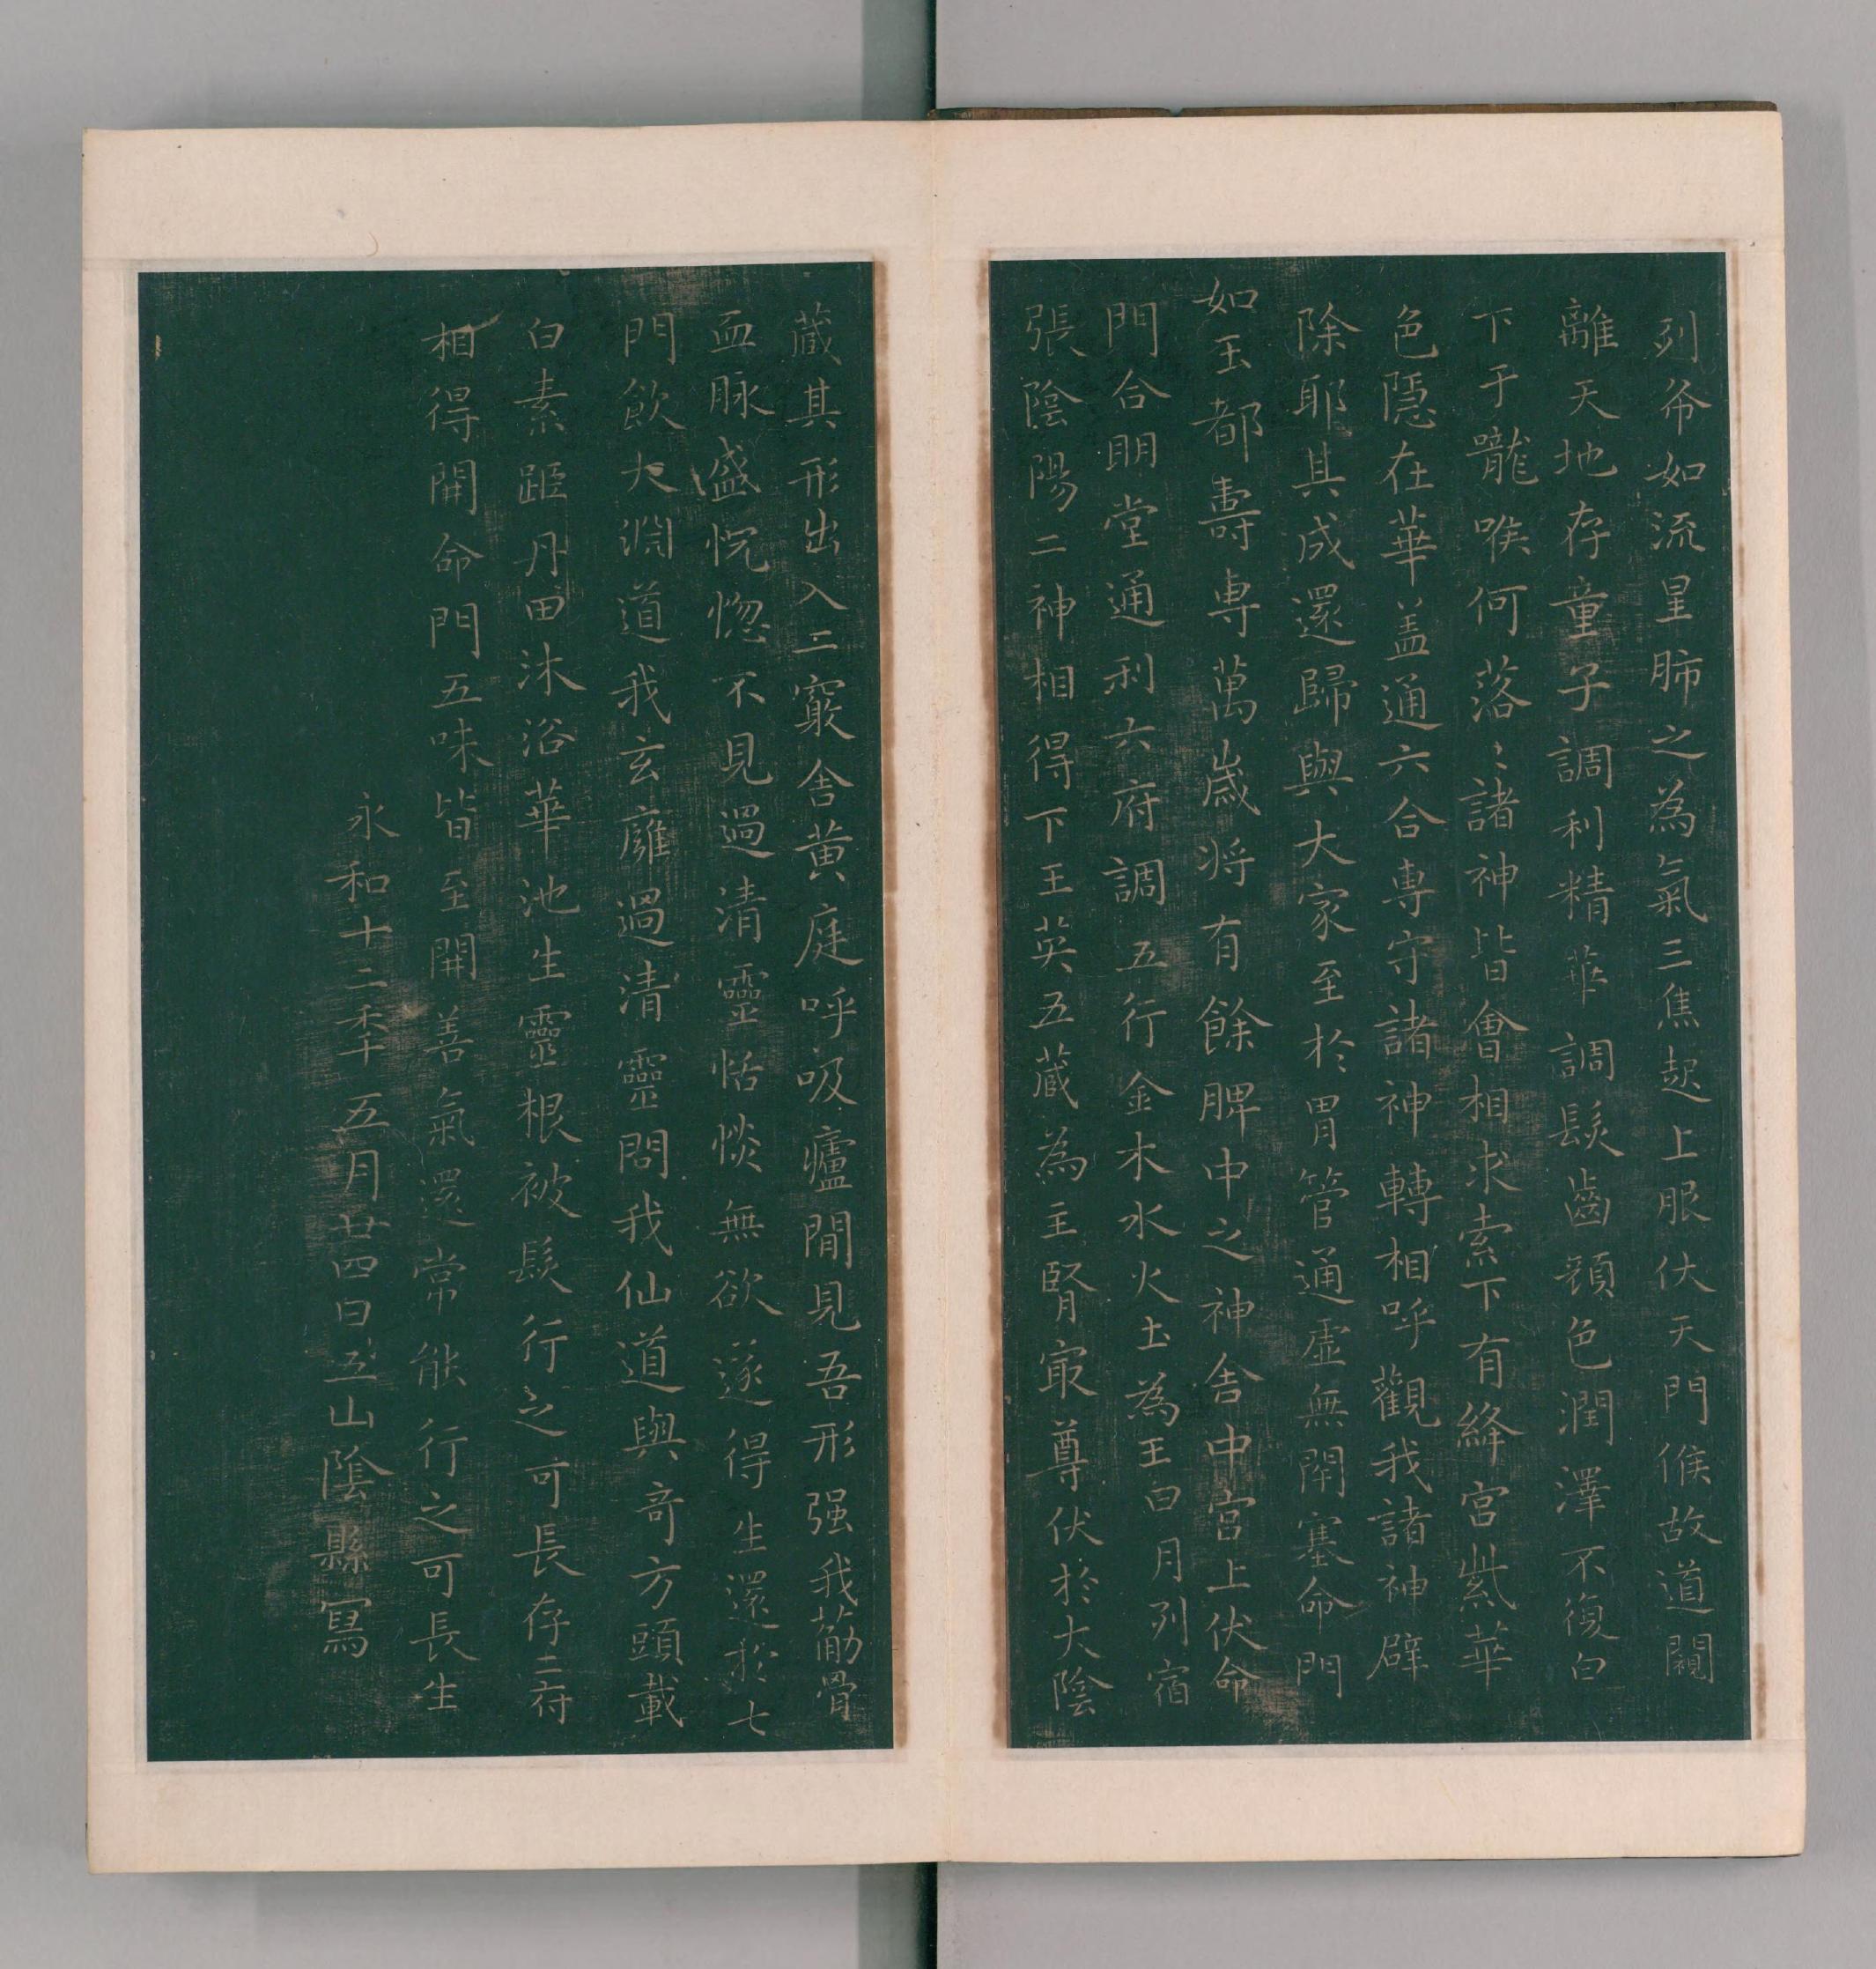 列布如流星肺之為氣三焦起上服伏天門候故道闚
離天地存童子調利精華調髮齒顏色潤澤不復白
下于嚨喉何落〻諸神皆會相求索下有絳宮紫華
色隱在華蓋通六合專守諸神轉相呼觀我諸神辟
除耶其成還歸與大家至於胃管通虛無閉塞命門
如玉都壽專萬歲將有餘脾中之神舍中宮上伏命
門合明堂通利六府調五行金木水火土為王日月列宿
張陰陽二神相得下玉英五藏為主腎㝡尊伏於大陰
藏其形出入二竅舍黃庭呼吸廬間見吾形强我筋骨
血脉盛恍惚不見過清靈恬惔無欲遂得生還於七
門飲大淵道我玄廱過清靈問我仙道與奇方頭載
白素距丹田沐浴華池生靈根被髮行之可長存二府
相得開命門五味皆至開善氣還常能行之可長生
永和十二年五月廿四日五山陰縣寫